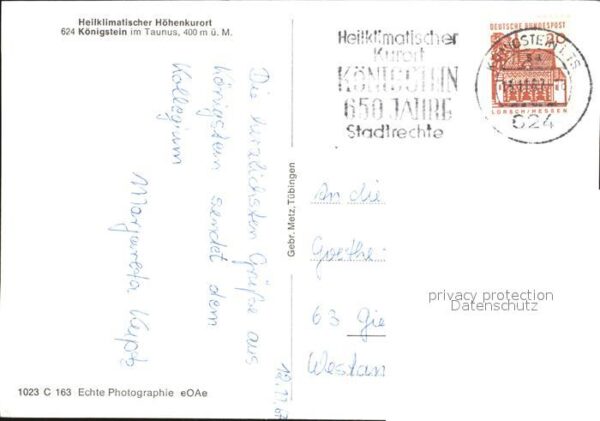 Heilklimatischer Höhenkurort
624 Königstein im Taunus, 400 m ü. M.
Die herzlichsten Grüße aus
Königstein sendet dem
Kollegium
Margareta
1023 C 163 Echte Photographie eOAe
Gebr. Metz, Tübingen
Heilklimatischer
Kurort
KÖNIGSTEIN
650 JAHRE
Stadtrechte
DEUTSCHE BUNDESPOST
20
LORSCH/HESSEN
KÖNIGSTEIN, TS
624
An die
Goethe-
63 Gie
Westan
12.11.67
privacy protection
Datenschutz